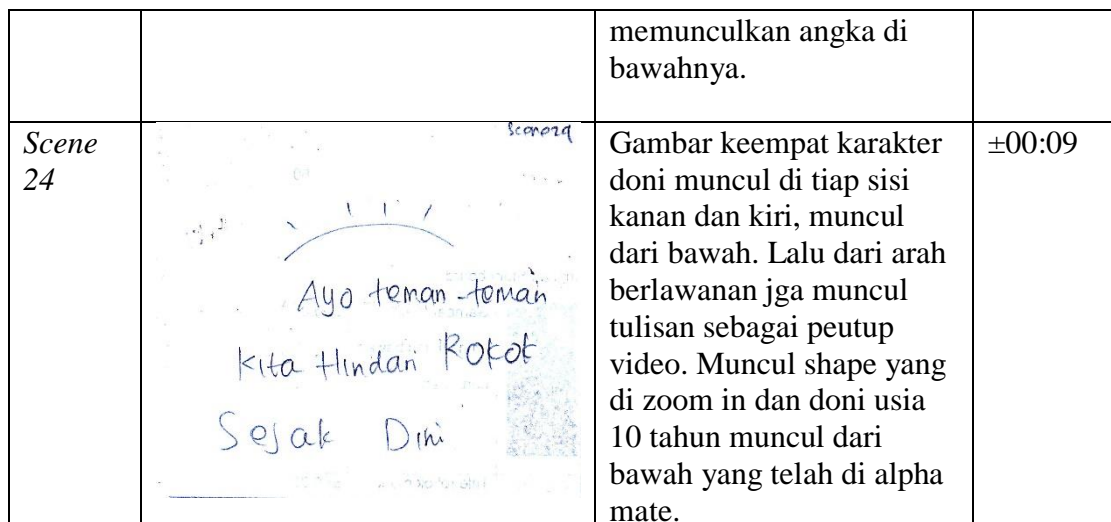 memunculkan angka di
bawahnya.
Scene
24
Scene24
Ayo teman-teman
Kita Hindari Rokok
Sejak Dini
Gambar keempat karakter
doni muncul di tiap sisi
kanan dan kiri, muncul
dari bawah. Lalu dari arah
berlawanan jga muncul
tulisan sebagai peutup
video. Muncul shape yang
di zoom in dan doni usia
10 tahun muncul dari
bawah yang telah di alpha
mate.
±00:09